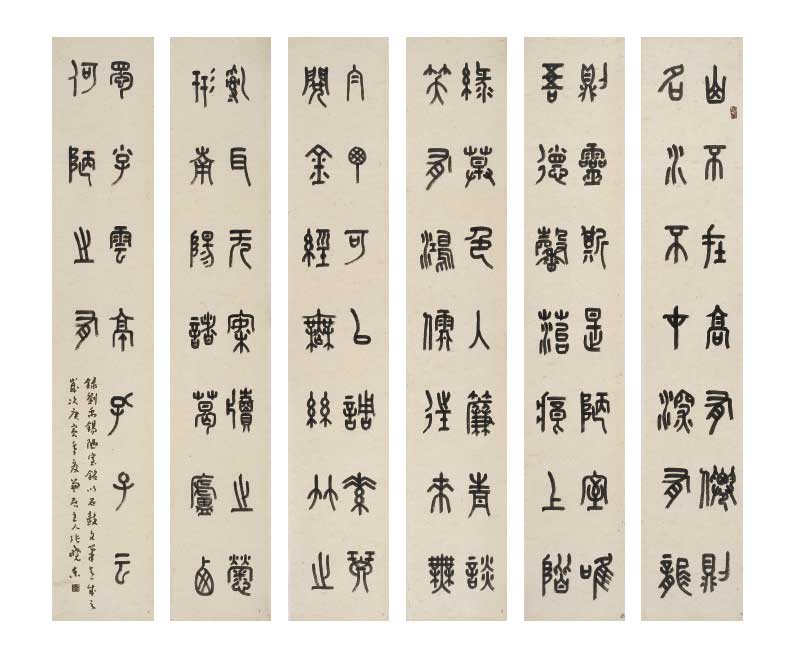 山不在高有僊則
名水不中深有龍
則靈斯是陋室唯
吾德馨苔痕上階
綠草色人簾青談
笑有鴻儒往來無
可以調素琴
閱金經無絲竹之
亂耳无案牘之勞
形南陽諸葛廬西
蜀子雲亭孔子云
何陋之有
錄劉禹錫陋室銘以石鼓文筆意成之
歲次庚寅年夏主人張曉東